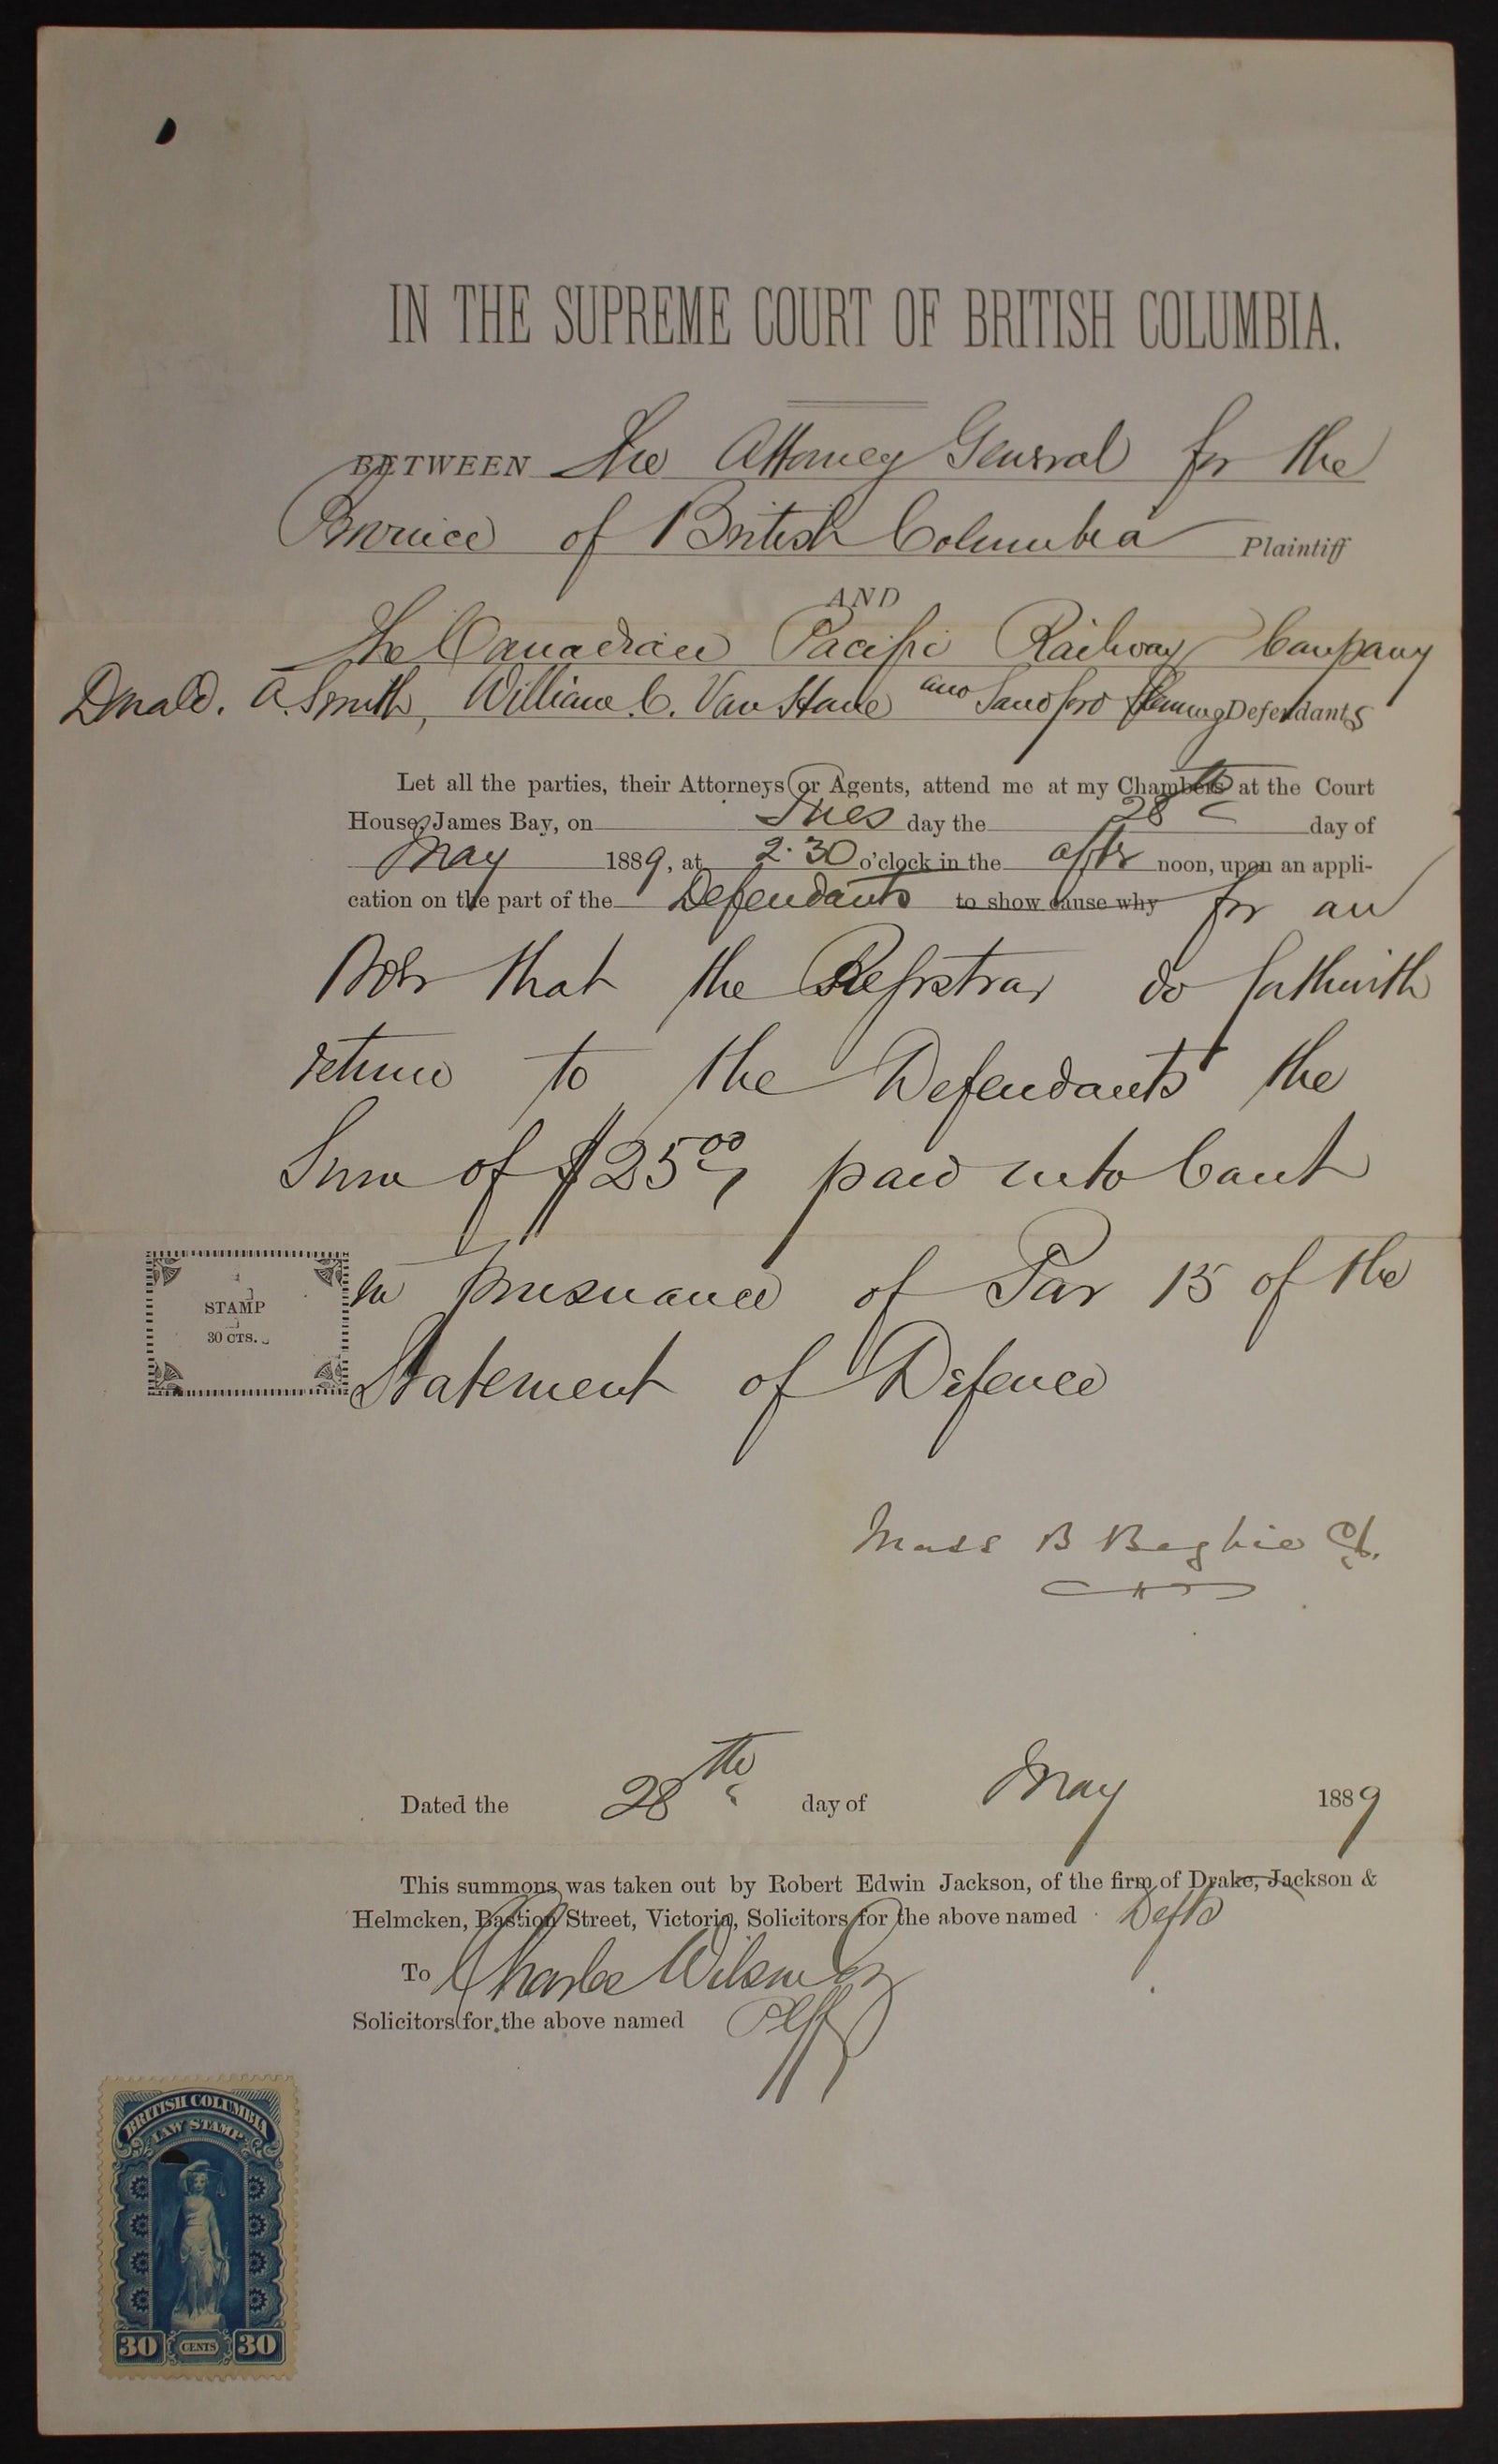 IN THE SUPREME COURT OF BRITISH COLUMBIA.
BETWEEN The Attorney General for the
Province of British Columbia Plaintiff
AND
The Canadian Pacific Railway Company
Donald. A. Smith, William C. Van Horne and Sandford Fleming Defendants
Let all the parties, their Attorneys or Agents, attend me at my Chambers at the Court
House, James Bay, on Tues day the 28th day of
May 1889, at 2.30 o'clock in the after noon, upon an appli-
cation on the part of the Defendants to show cause why for an
Order that the Registrar do forthwith
return to the Defendants the
Sum of $25.00 paid into Court
in pursuance of Par 15 of the
Statement of Defence
STAMP
30 CTS.
Matt B Begbie CJ.
Dated the 28th day of May 1889
This summons was taken out by Robert Edwin Jackson, of the firm of Drake, Jackson &
Helmcken, Bastion Street, Victoria, Solicitors for the above named Defts
To Charles Wilson Esq
Solicitors for the above named Plff
BRITISH COLUMBIA
LAW STAMP
30 CENTS 30